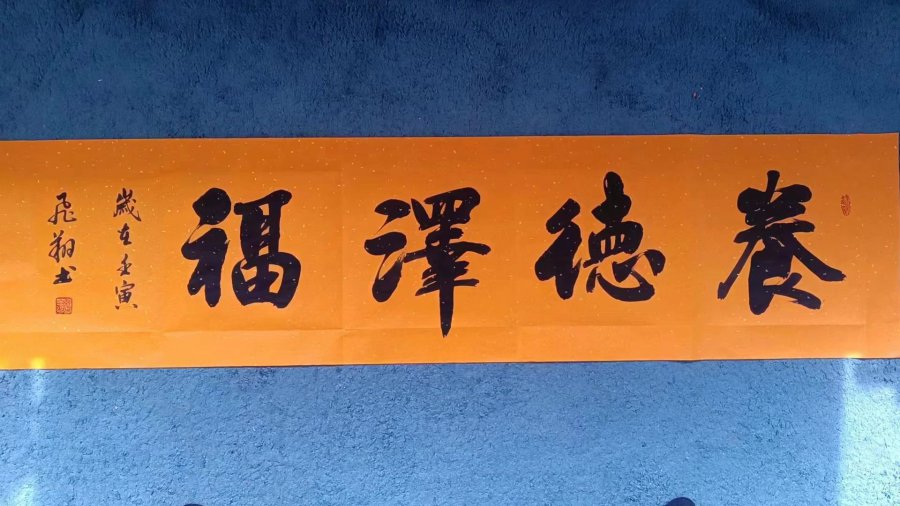 養德澤福
歲在壬寅
飛翔书